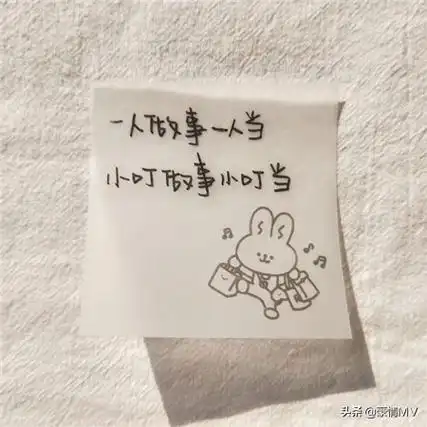 一人做事一人当
小叮做事小叮当
头条@豪情MV